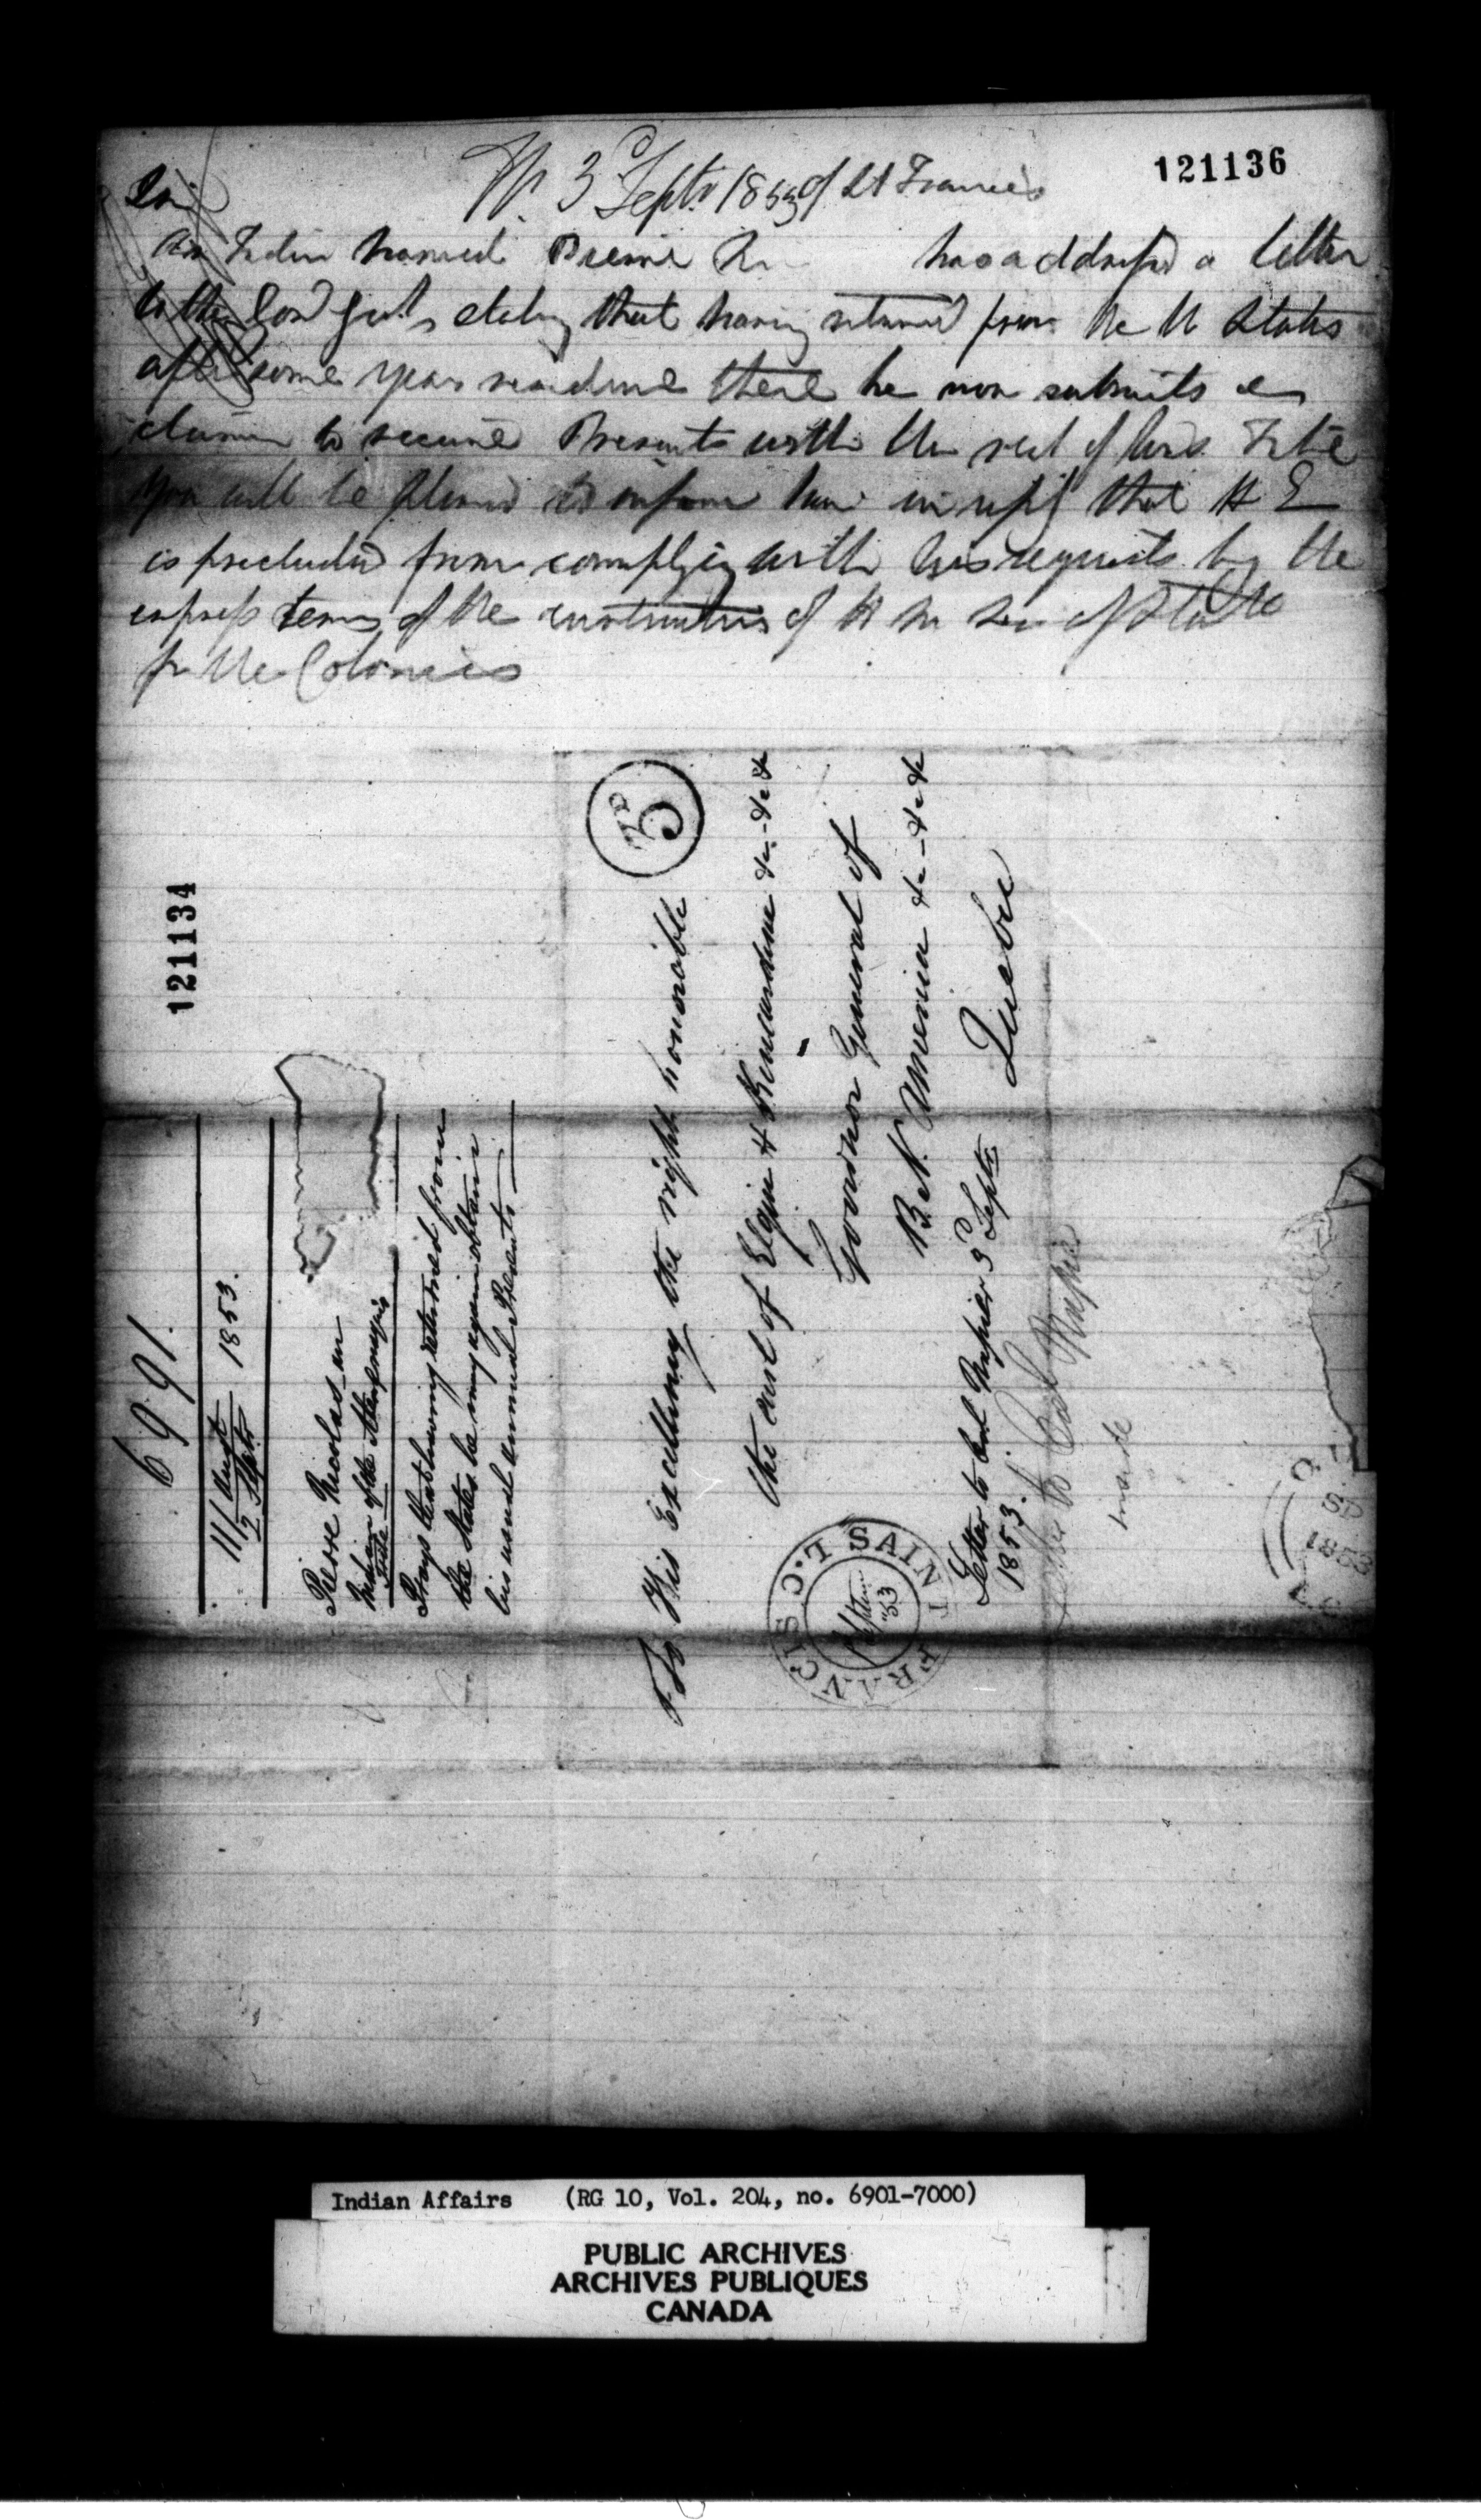 121136
3 Septr 1853 of St Francis
Sir
An Indian named Pierre has addressed a letter
to the Gov Genl stating that having returned from the U States
after some years residence there he now submits
claim to receive Presents with the rest of his Tribe
You will be pleased to inform him in reply that H E
is precluded from complying with his request by the
express terms of the instructions of H M Sec of State
for the Colonies
121134
6991.
11/ Augt 1853.
2 Septr
Pierre Nicolas an
Indian of the Abenaquis
Tribe
Prays that having returned from
the States he may again obtain
his usual annual Presents
3D
To His Excellency the right honorable
the earl of Elgin & Kincardine &c-&c&
Governor General of
B.N. America &c-&c&
Quebec
Letter to Col Napier 3d Septr
1853.
to Col Napier
inside
SAINT FRANCIS C.T.
Septem
"53
SP
1853
L.C
Indian Affairs (RG 10, Vol. 204, no. 6901-7000)
PUBLIC ARCHIVES
ARCHIVES PUBLIQUES
CANADA